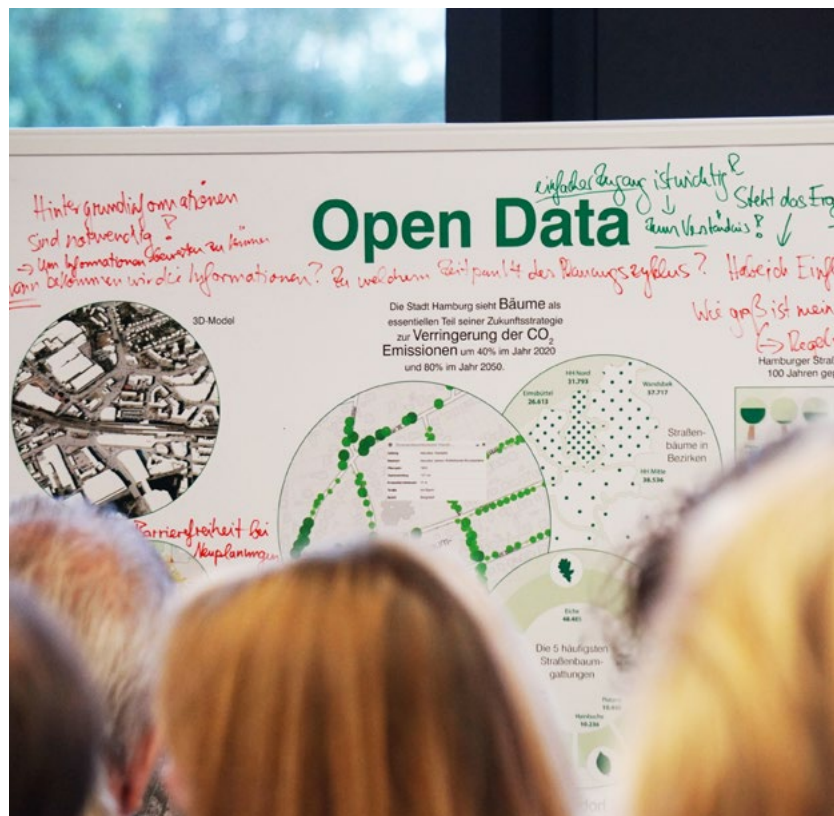 Hintergrundinformationen
sind notwendig!
→ Um Informationen bewerten zu können
Wann bekommen wir die Informationen? Zu welchem Zeitpunkt des Planungszyklus? Habe ich Einfl
einfacher Zugang ist wichtig!
↓
zum Verständnis!
Steht das Erg
Wie groß ist mein
↳ Regel
Open Data
3D-Model
Die Stadt Hamburg sieht Bäume als
essentiellen Teil seiner Zukunftsstrategie
zur Verringerung der CO₂
Emissionen um 40% im Jahr 2020
und 80% im Jahr 2050.
Hamburger Straß
100 Jahren gep
HH Nord
31.793
Eimsbüttel
26.613
Wandsbek
37.717
Straßen-
bäume in
Bezirken
HH Mitte
36.536
Barrierefreiheit bei
Neuplanungen
Eiche
48.485
Die 5 häufigsten
Straßenbaum-
gattungen
Hainbuche
10.236
dorf